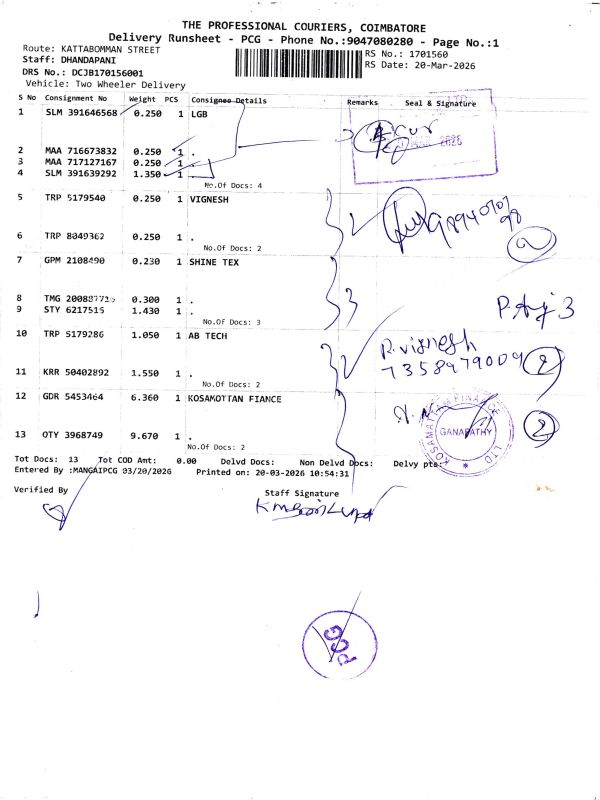 THE PROFESSIONAL COURIERS, COIMBATORE
Delivery Runsheet - PCG - Phone No.:9047080280 - Page No.:1
Route: KATTABOMMAN STREET
RS No.: 1701560
Staff: DHANDAPANI
RS Date: 20-Mar-2026
DRS No.: DCJB170156001
Vehicle: Two Wheeler Delivery
S No Consignment No Weight PCS Consignee Details Remarks Seal & Signature
1 SLM 391646568 0.250 1 LGB
2 MAA 716673832 0.250 1 .
3 MAA 717127167 0.250 1 .
4 SLM 391639292 1.350 1 .
No.Of Docs: 4
5 TRP 5179540 0.250 1 VIGNESH
6 TRP 8049362 0.250 1 .
No.Of Docs: 2
2
7 GPM 2108490 0.230 1 SHINE TEX
8 TMG 1 0.300 1 .
9 STY 6217515 1.430 1 .
3
No.Of Docs: 3
10 TRP 5179286 1.050 1 AB TECH
P. Vignesh
7358979009 2
11 KRR 50402892 1.550 1 .
No.Of Docs: 2
12 GDR 5453464 6.360 1 KOSAMOTTAN FIANCE
KOSAMATTAM FINANCE LTD
GANAPATHY
2
13 OTY 3968749 9.670 1 .
No.Of Docs: 2
Tot Docs: 13 Tot COD Amt: 0.00 Delvd Docs: Non Delvd Docs: Delvy pts:
Entered By :MANGAIPCG 03/20/2026 Printed on: 20-03-2026 10:54:31
Verified By
Staff Signature
PCG